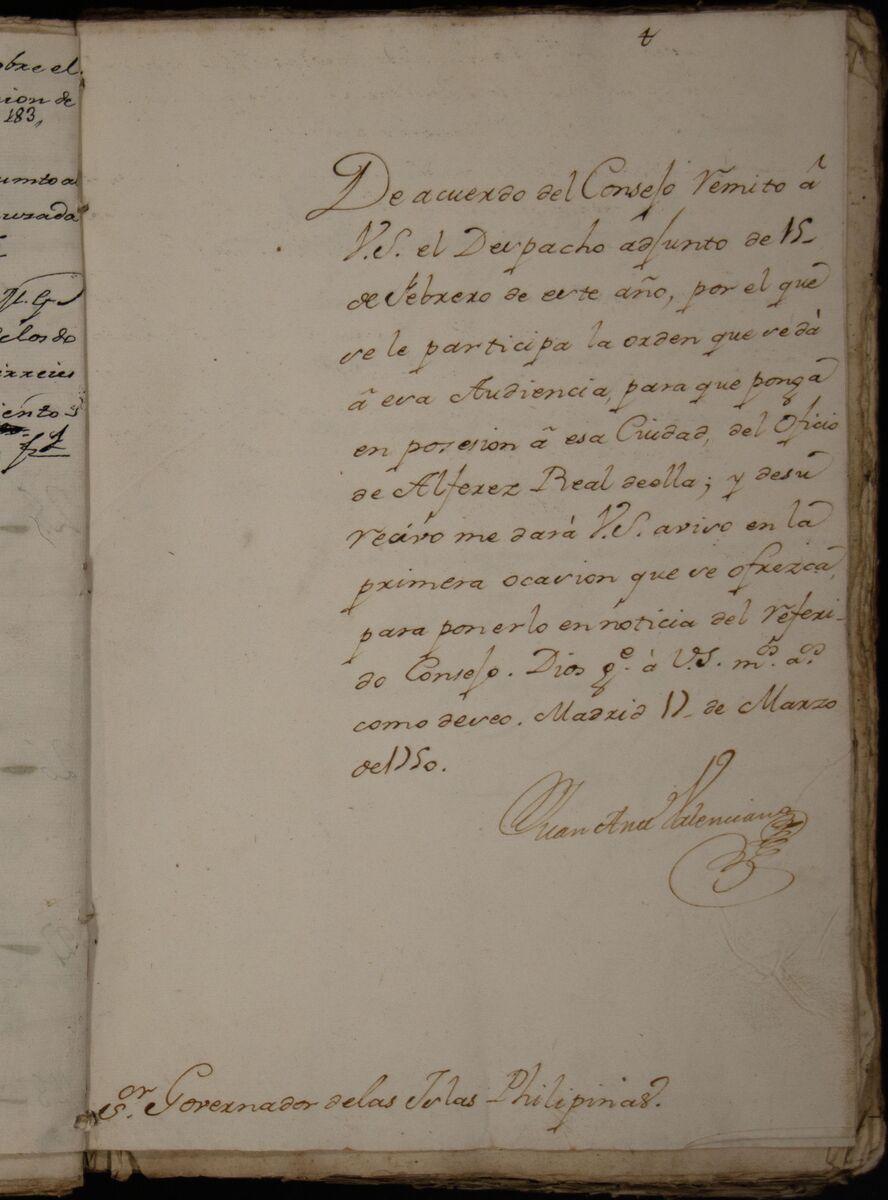 obre el
cion de
183,
umto a
uzada
delos do
irreies
iento s
De acuerdo del Consejo remito â
V.S. el Despacho adjunto de 15-
de febrero de este año, por el que
se le participa la orden que se dà
â esa Audiencia, para que ponga
en posesion â esa Ciudad, del Oficio
de Alferez Real de olla; y de su
recivo me darà V.S. aviso en la
primera ocasion que se ofrezca,
para ponerlo en noticia del referi-
do Consejo. Dios g.e à V.S. m.s a.s
como deseo. Madrid 17- de Marzo
de 1750.
Juan Ant Valenciano
S.or Governador de las Islas Philipinas.